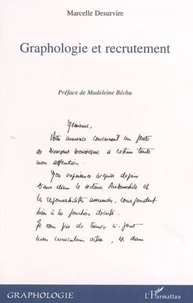 Marcelle Desurvire
Graphologie et recrutement
Préface de Madeleine Béchu
Monsieur,
Votre annonce concernant un poste
de
a retenu toute
mon attention.
Mon expérience acquise depuis
dans le secteur Automobile et
la responsabilité assumée, correspondent
bien à la fonction décrite.
Je vous prie de trouver ci-joint
mon curriculum vitae, et dans
GRAPHOLOGIE
L'Harmattan